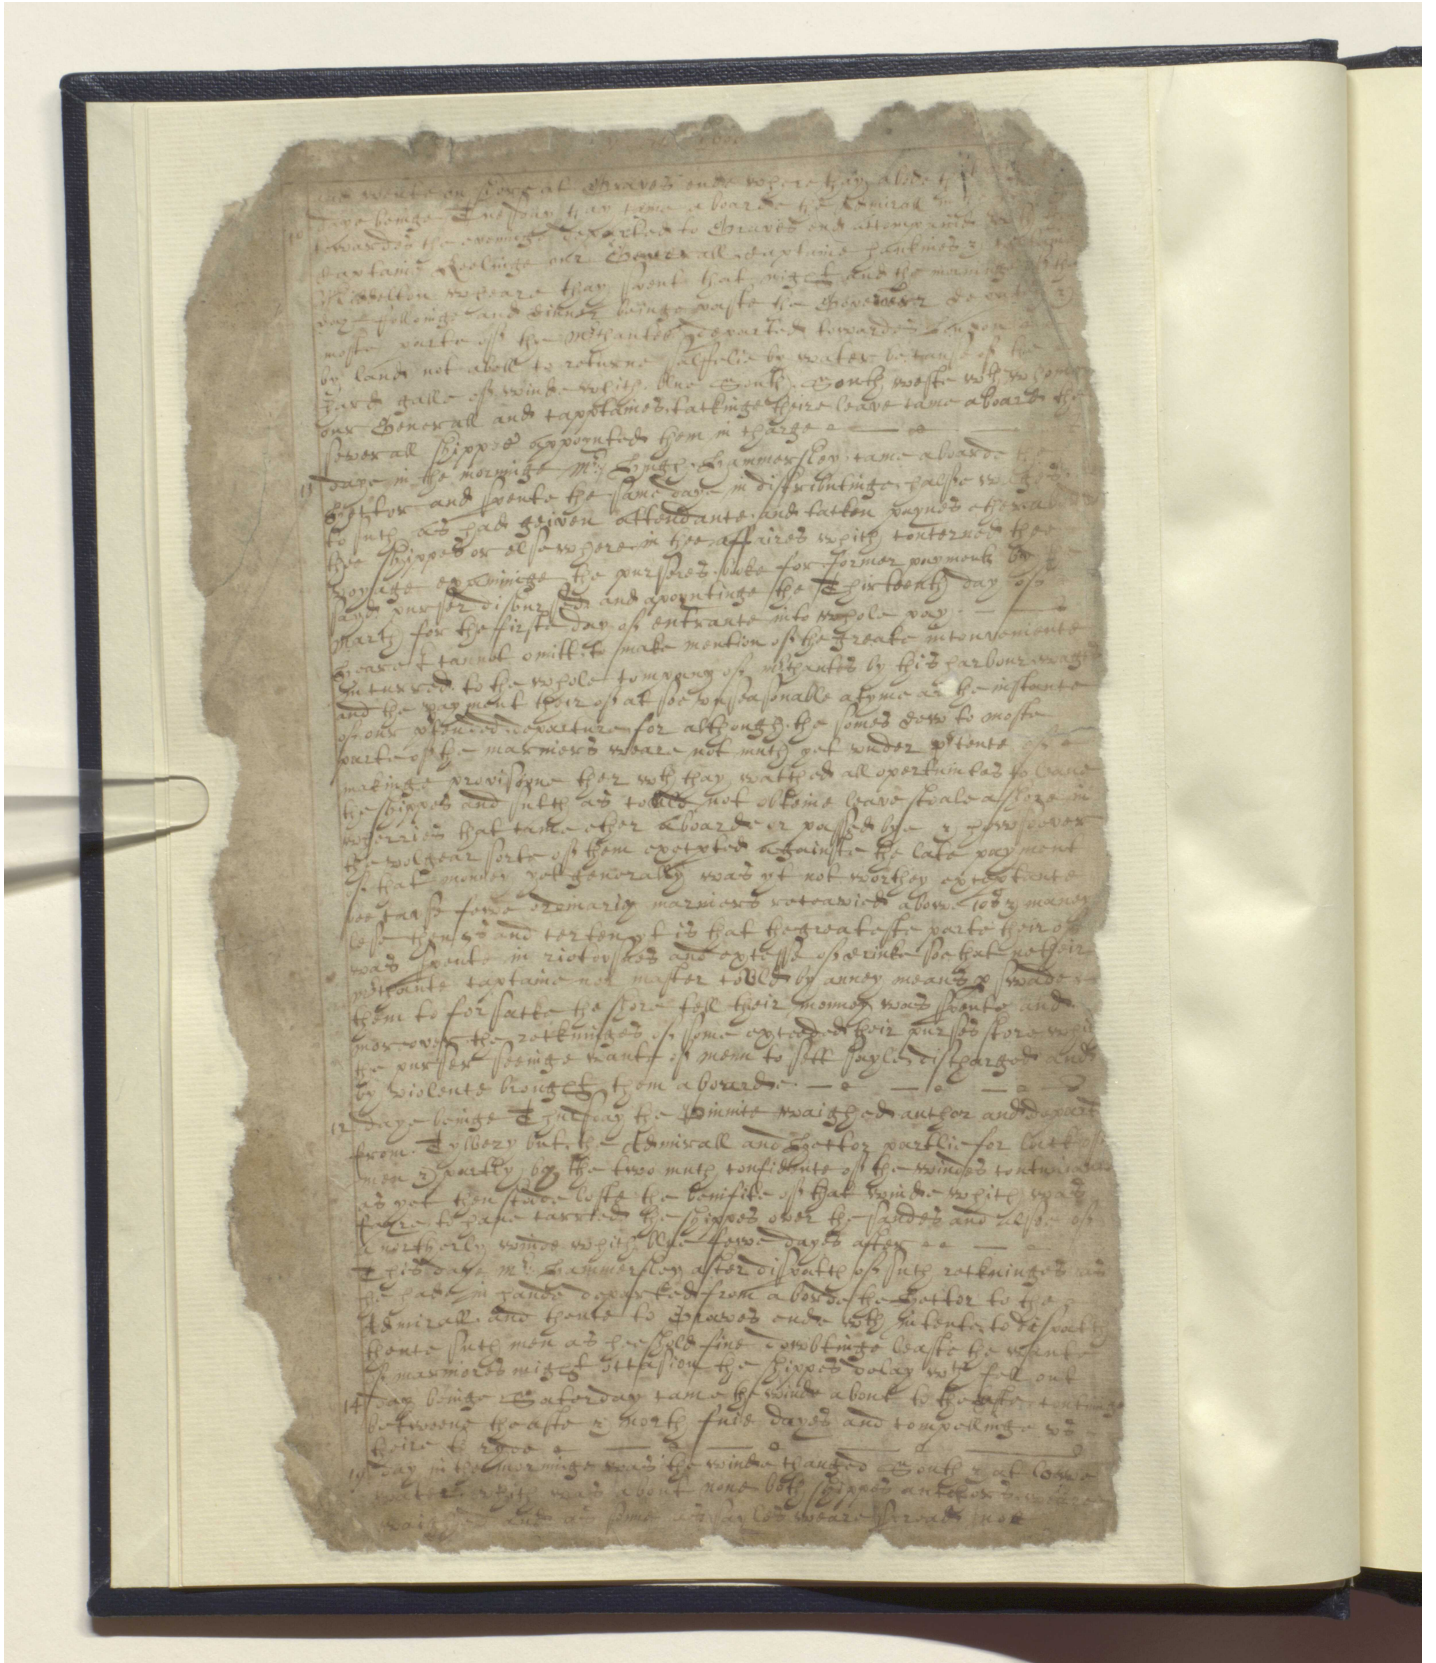 and wente on shore at Graves ende where thay abode th
10 daye beinge Tuesday thay came aboarde the Admirall
towardes the evoninge departed to Graves end accompanied
Captaine Keelinge our Generall Captaine Hankines &
Middelton wheare thay spent that night and the morninge of the
day followinge and dinner beinge paste the Governer
moste parte of the Mrchantes departed towardes London
by land not abell to returne saffelie by water because of the
hard galle of winde which blue South South weste wth whome
our Generall and capptaines tackinge theire leave came aboard the
severall shippes appoynted them in charge
11 daye in the morninge Mr Hugh Hammersley came aboarde the
Hecktor and spente the same daye in distributinge halfe wages
to such as had geiven attendance and tacken paynes ether aborde
the shippes or elsewhere in thee affaires which concerned thee
voyage examininge the pursers booke for former payments by the
sayd purser disbursed and apoyntinge the Thirteenth day of
March for the firste day of entrance into whole pay
Heare I cannot omitt to make mention of the greate inconvenience
incurred to the whole company of Mrchantes by this harbour wages
and the payment theirof at soe unseasonable a tyme as the instante
of our ptended departure for although the somes dew to moste
parte of the mariners weare not much yet under ptence of
makinge provisyone ther wth thay watched all opertunites to leave
the shippes and such as could not obteine leave stoale a shore in
wherries that came ether aboarde or passed bye & howsoever
the volgear sorte of them excepted againste the late payment
of that monney yet generally was yt not worthey exceptance
because fewe ordinariy mariners receavied above 10s & maney
lesse then 5s and certen yt is that the greateste parte theirof
was spente in riotousnes and excesse of drinke soe that nether
Mrchante captaine nor master could by anney meanes pswade
them to forsacke the shore tell their monney was spente and
moreover the reckninges of some exceeded their purses store which
the purser seeinge wante of menn to sett sayle discharged and
by violence brought them abourde
12 daye beinge Thursday the Pinnice waighed anchor and depart
from Tylbery but the Admirall and Hector partlie for lack of
men & partly by the two much confidence of the windes contnuance
as yet then stode loste the benifite of that winde which was
faire to have carried the shippes over the sandes and alsoe of
a northerly winde which blue fewe dayes after
This daye Mr Hammersley after dispatch of such reckninges as
he hade in hande departed from aborde the Hector to the
Admirall and thence to Graves ende wth intente to dispatch
thence such men as he shold fine dowbtinge leaste the wante
of marinores might occasion the shippes delay wch fell out
14 day beinge Saterday came the winde about to the easte contin
betweene the aste & north fuie dayes and compellinge us
theire to ryde
19 day in the morninge was the winde changed South & at lowe
water which was about none both shippes anchors weare
waighed and as some as sayles weare spread not